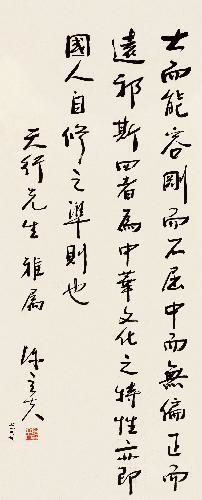 大而能容剛而不屈中而無偏正而
遠邪斯四者為中華文化之特性亦即
國人自修之準則也
天行先生雅屬 陳立夫